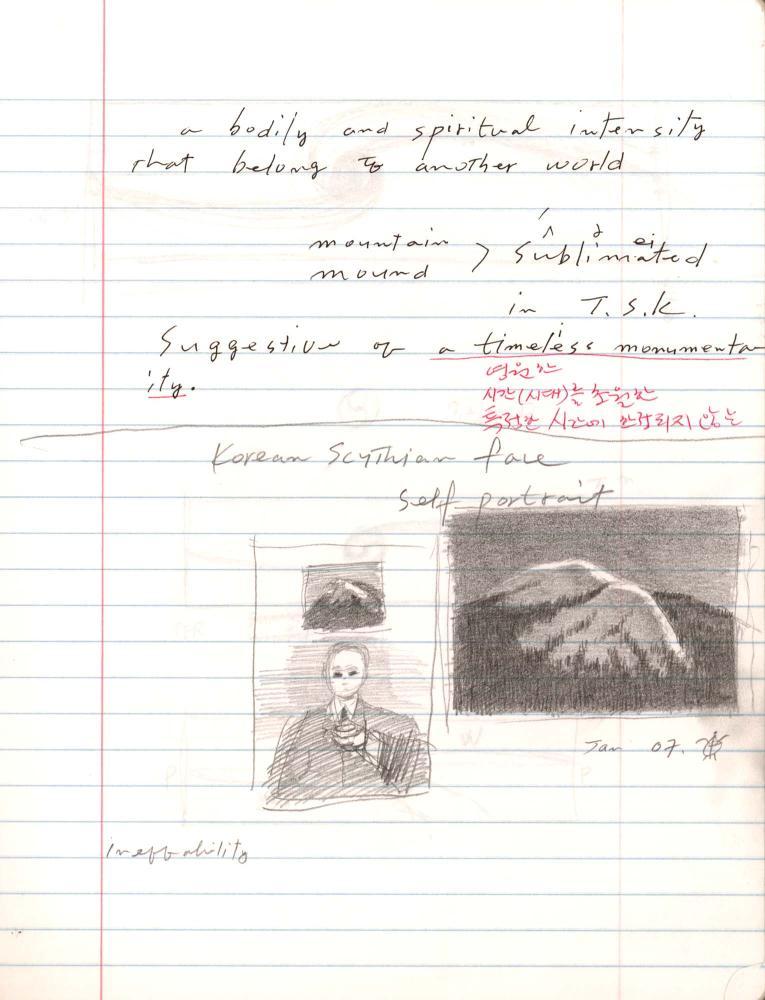 a bodily and spiritual intensity
that belong to another world
mountain
mound > sublimated
in T.S.K.
Suggestive of a timeless monumenta
ity.
영원한
시간(시대)를 초월한
특정한 시간에 한정되지 않는
Korean Scythian face
self portrait
Jan 07.
ineffability